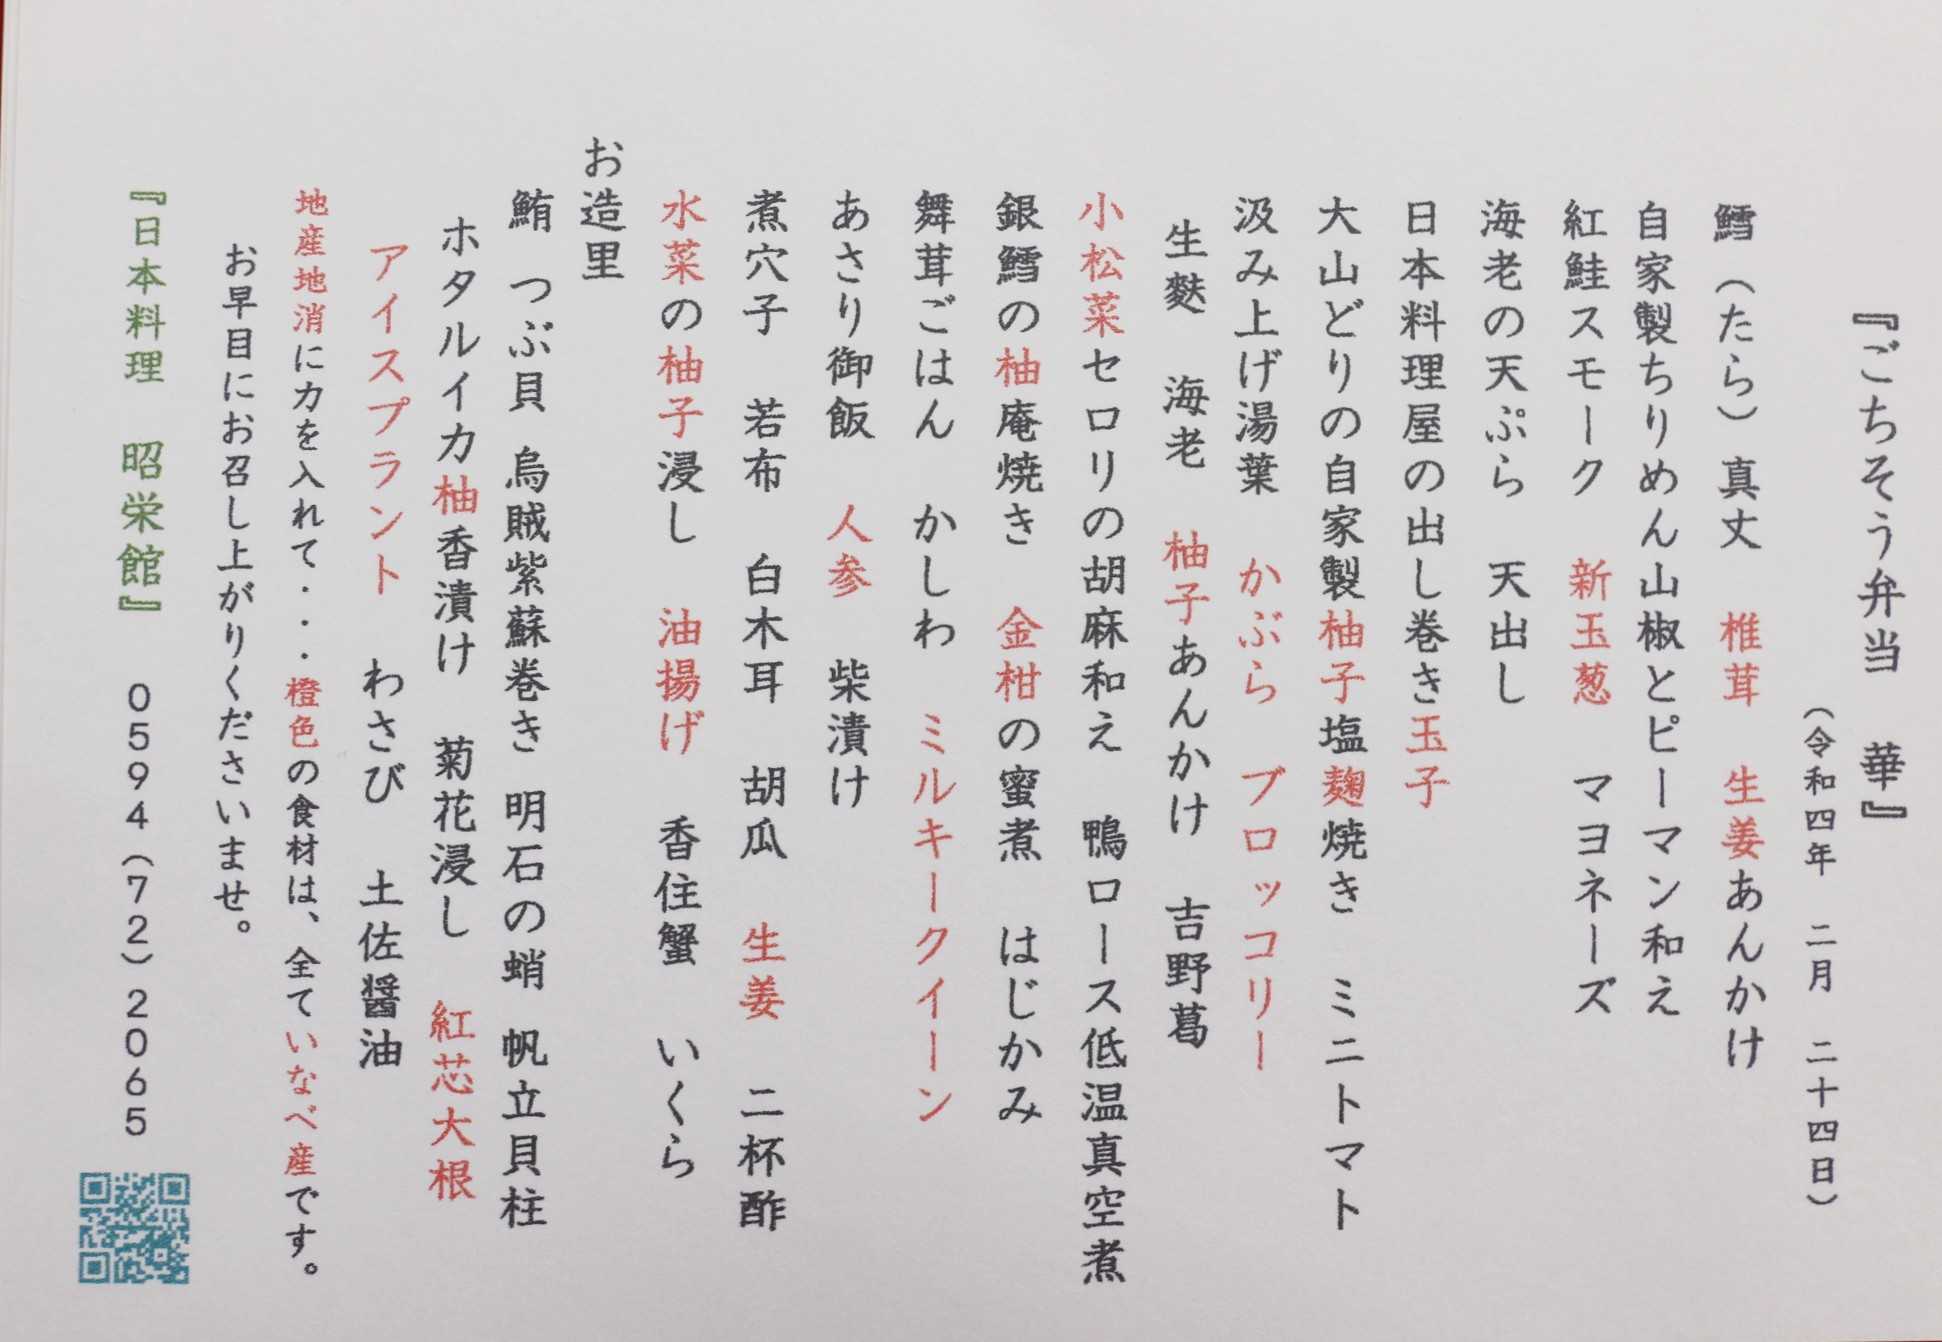 『ごちそう弁当　華』
（令和四年　二月　二十四日）
鱈（たら）真丈　椎茸　生姜あんかけ
自家製ちりめん山椒とピーマン和え
紅鮭スモーク　新玉葱　マヨネーズ
海老の天ぷら　天出し
日本料理屋の出し巻き玉子
大山どりの自家製柚子塩麹焼き　ミニトマト
汲み上げ湯葉　かぶら　ブロッコリー
生麩　海老　柚子あんかけ　吉野葛
小松菜セロリの胡麻和え　鴨ロース低温真空煮
銀鱈の柚庵焼き　金柑の蜜煮　はじかみ
舞茸ごはん　かしわ　ミルキークイーン
あさり御飯　人参　柴漬け
煮穴子　若布　白木耳　胡瓜　生姜　二杯酢
水菜の柚子浸し　油揚げ　香住蟹　いくら
お造里
鮪　つぶ貝　烏賊紫蘇巻き　明石の蛸　帆立貝柱
ホタルイカ柚香漬け　菊花浸し　紅芯大根
アイスプラント　わさび　土佐醤油
地産地消に力を入れて・・・橙色の食材は、全ていなべ産です。
お早目にお召し上がりくださいませ。
『日本料理　昭栄館』　0594（72）2065